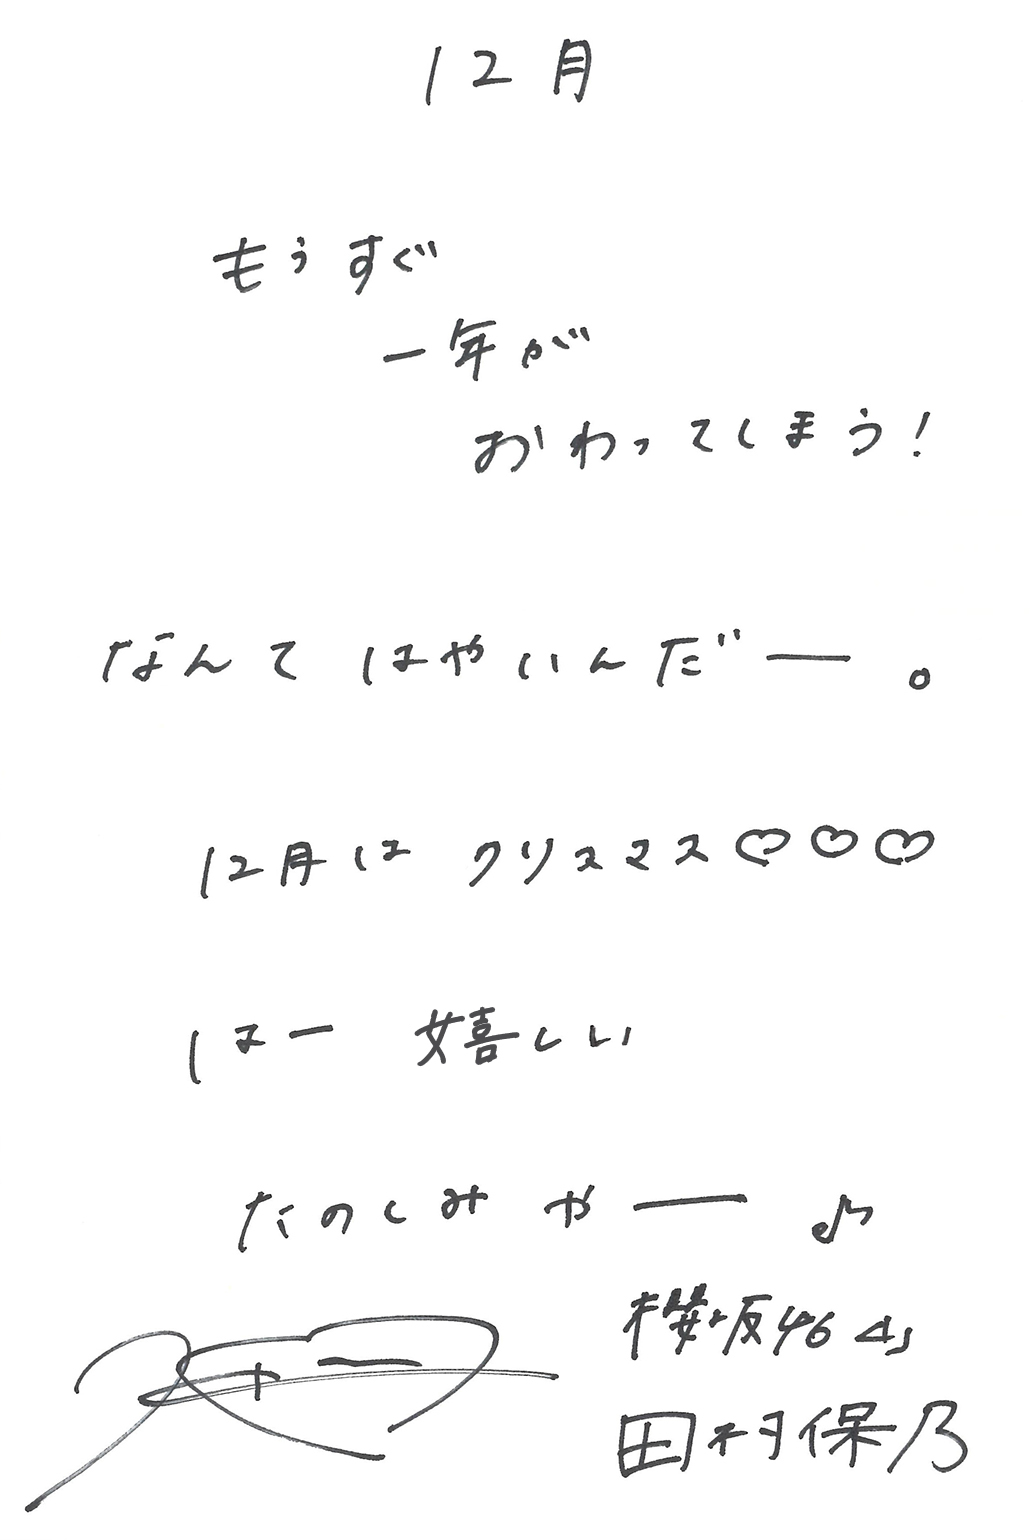 12月
もうすぐ
一年が
おわってしまう!
なんて はやいんだ゛ー。
12月は クリスマス♡♡♡
はー 嬉しい
たのしみ やー ♪
櫻坂46
田村保乃